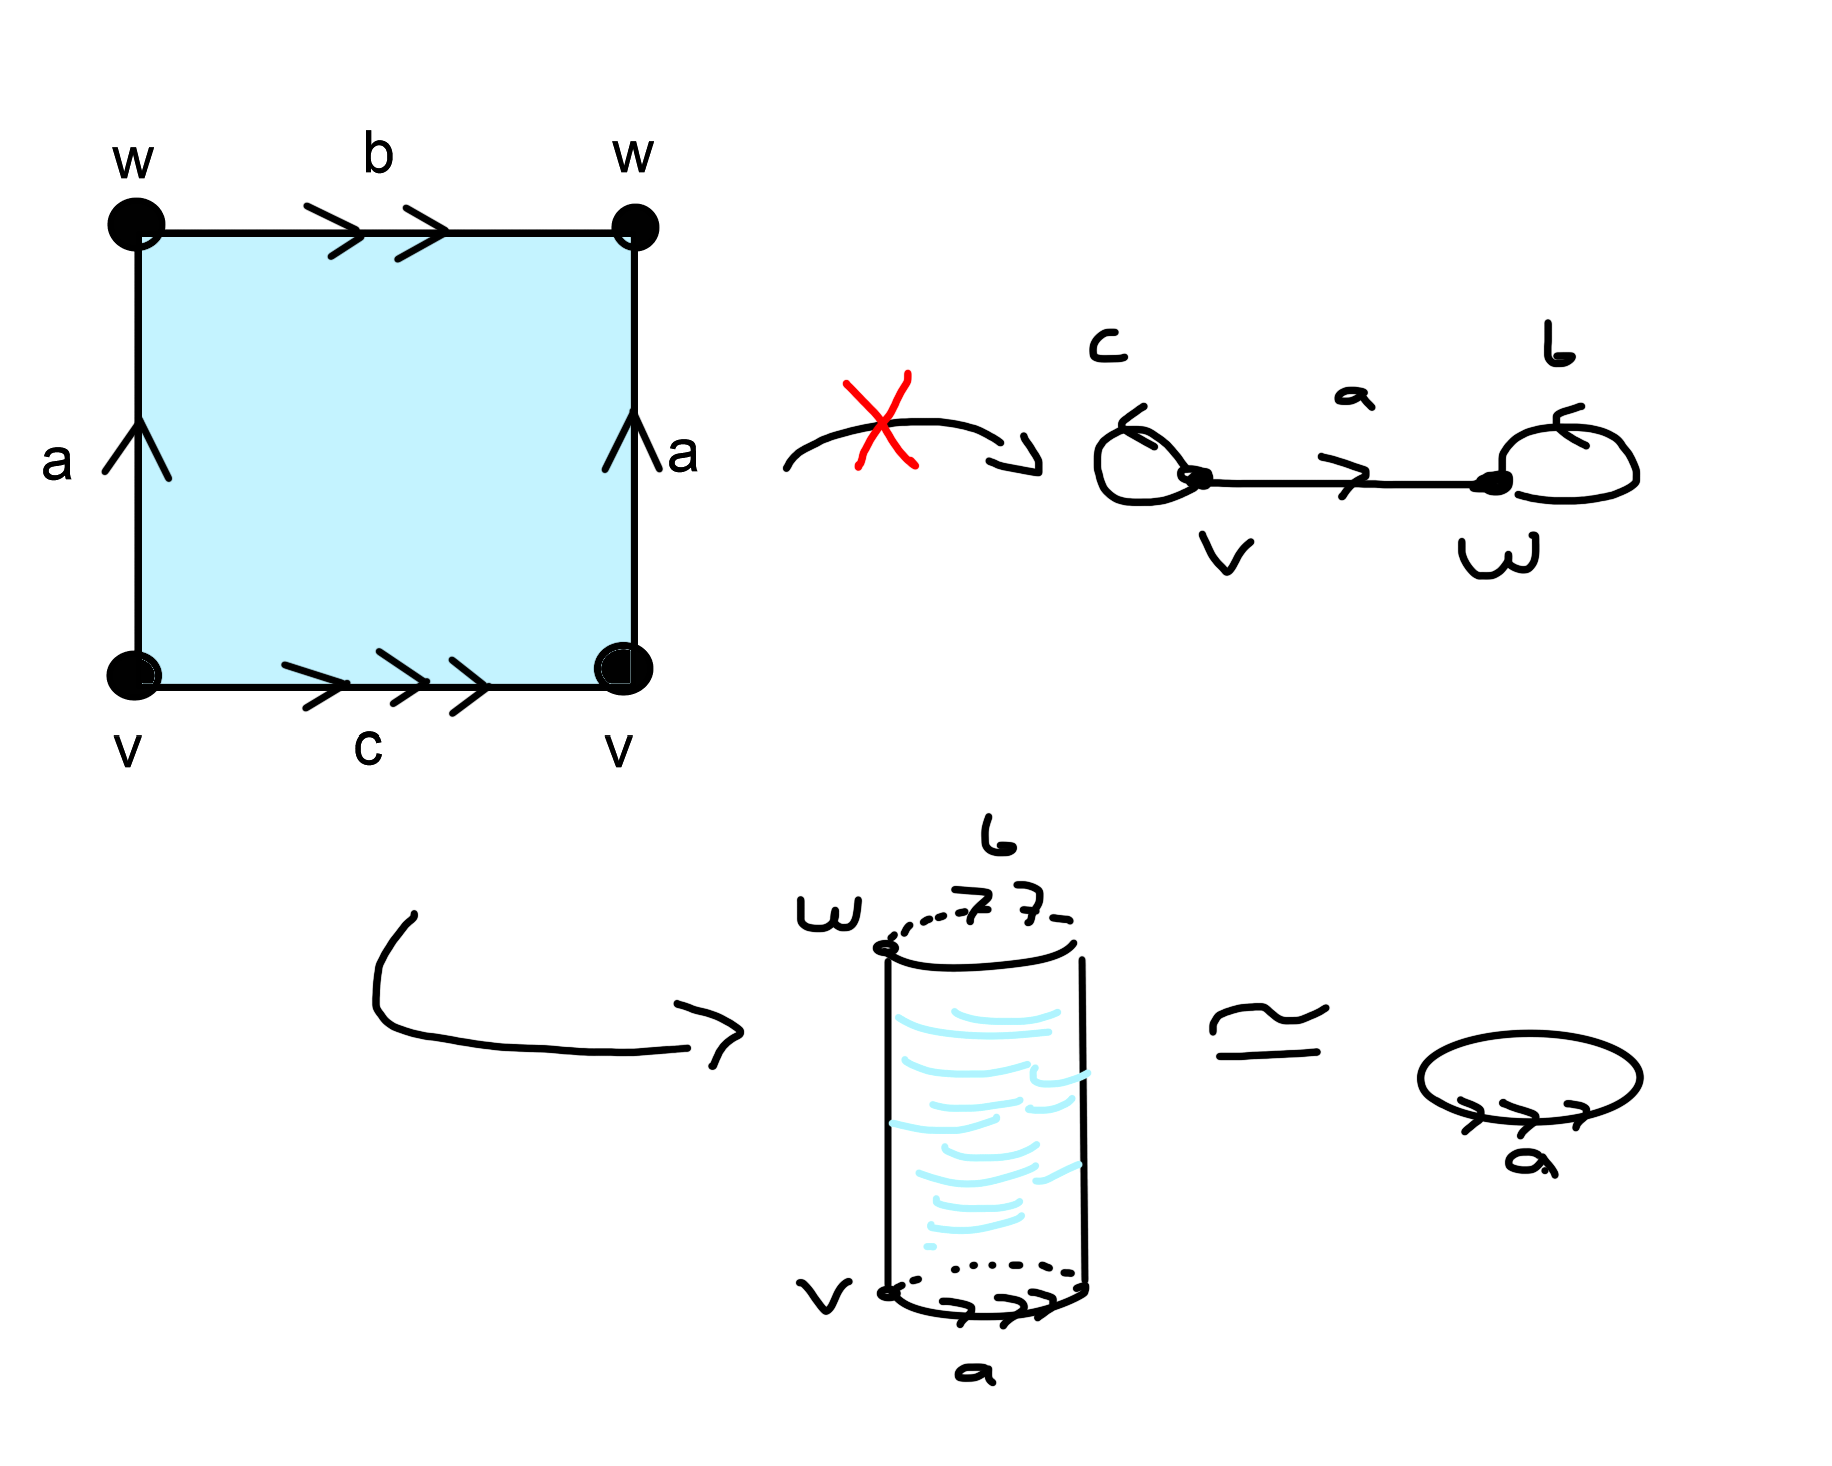 w b w
a a
v c v
c a b
v w
b
w
≅
v
a
a